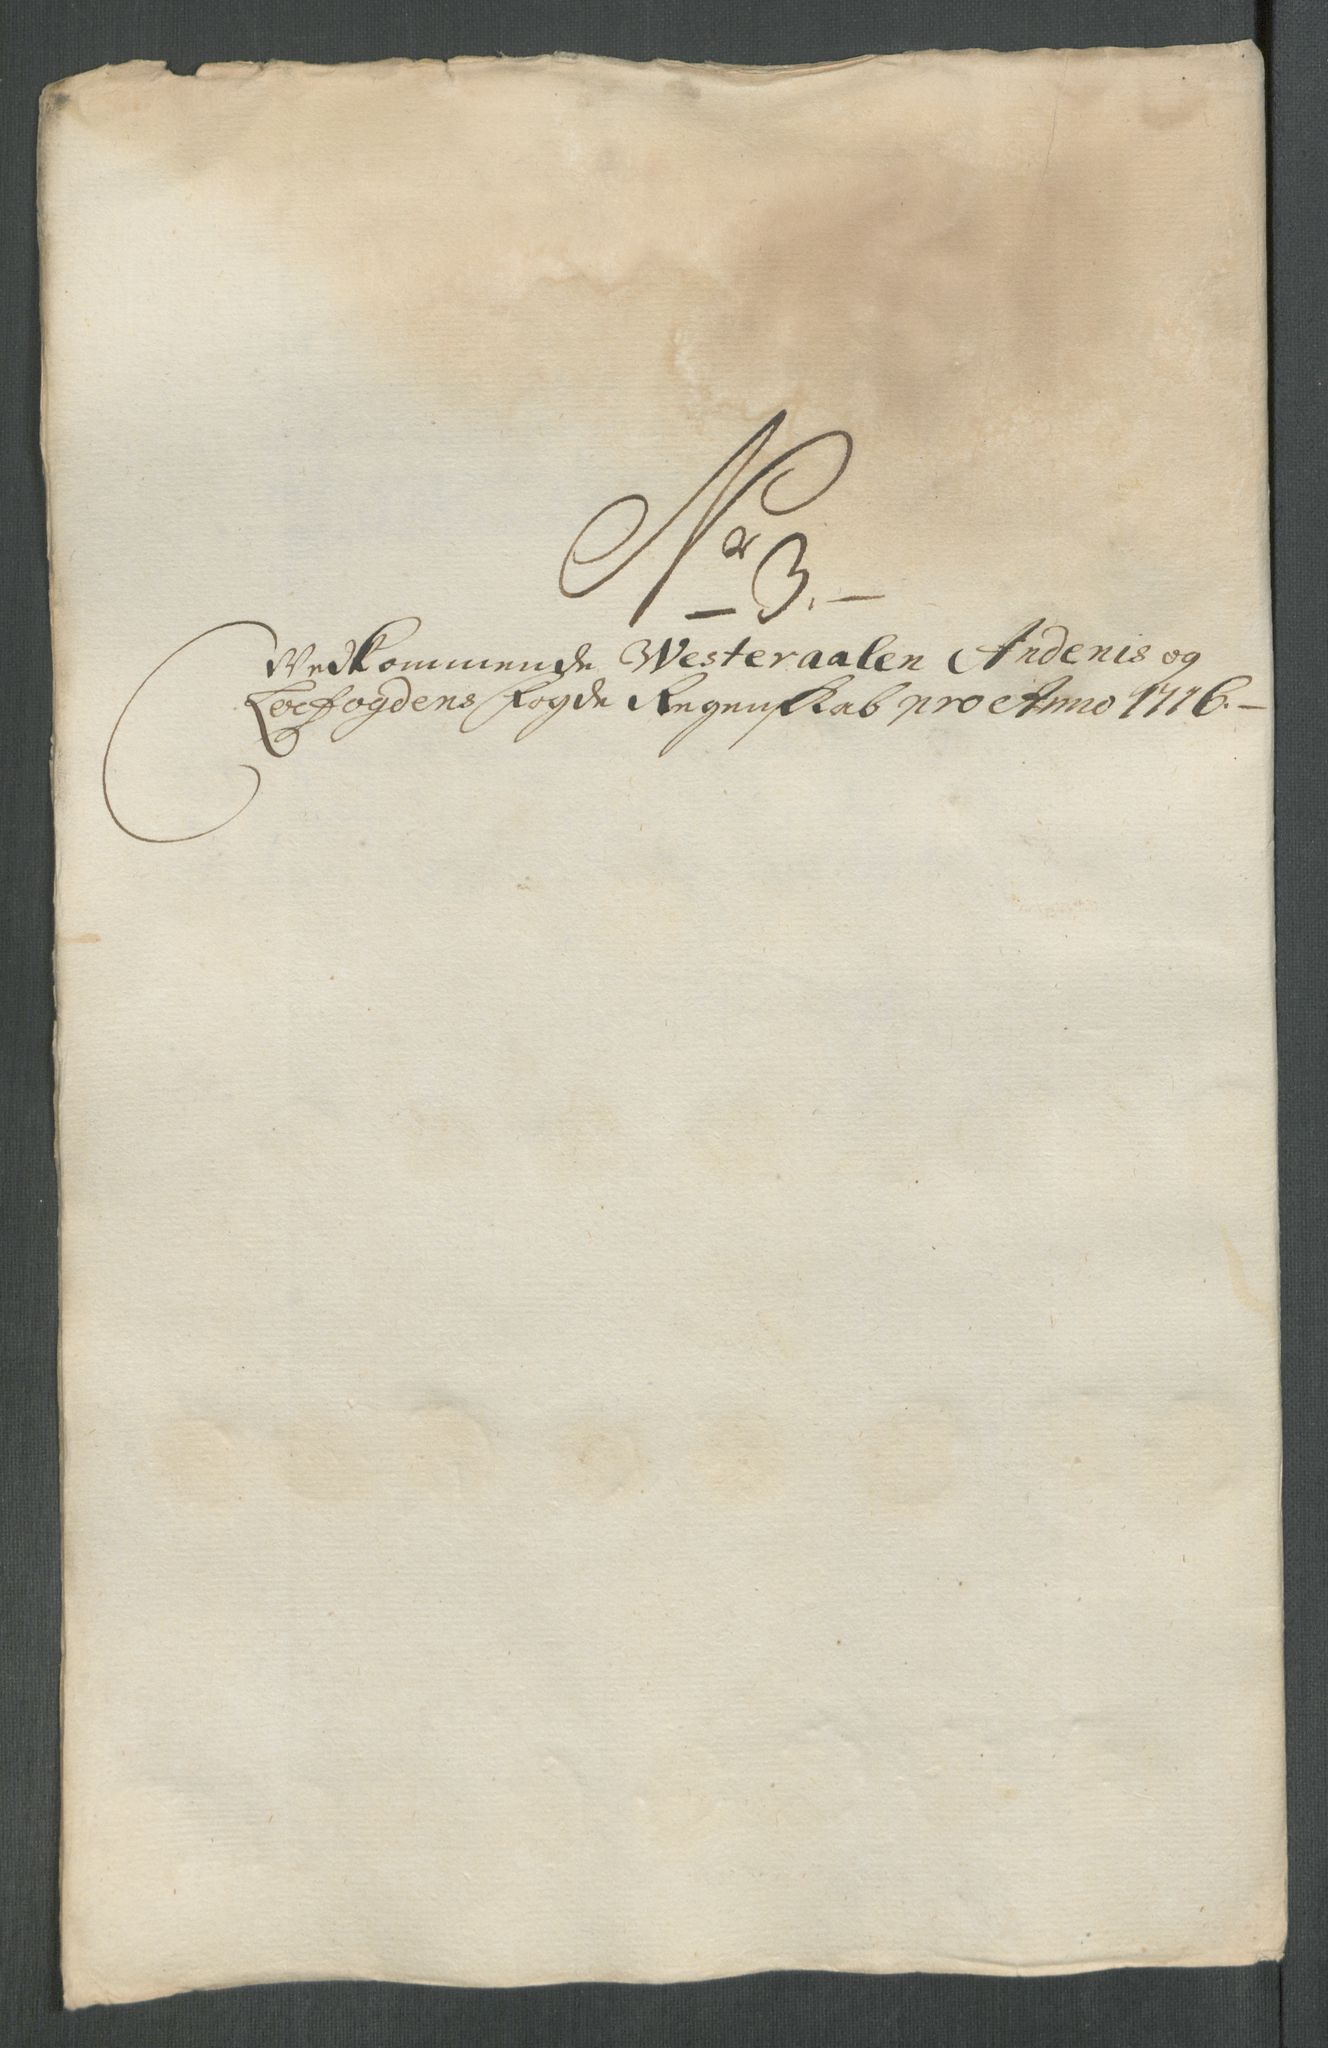 No 3.
Vedkommende Westeraalen Andenis og
Loefogdens fogde Regenskab pro Anno 1716.